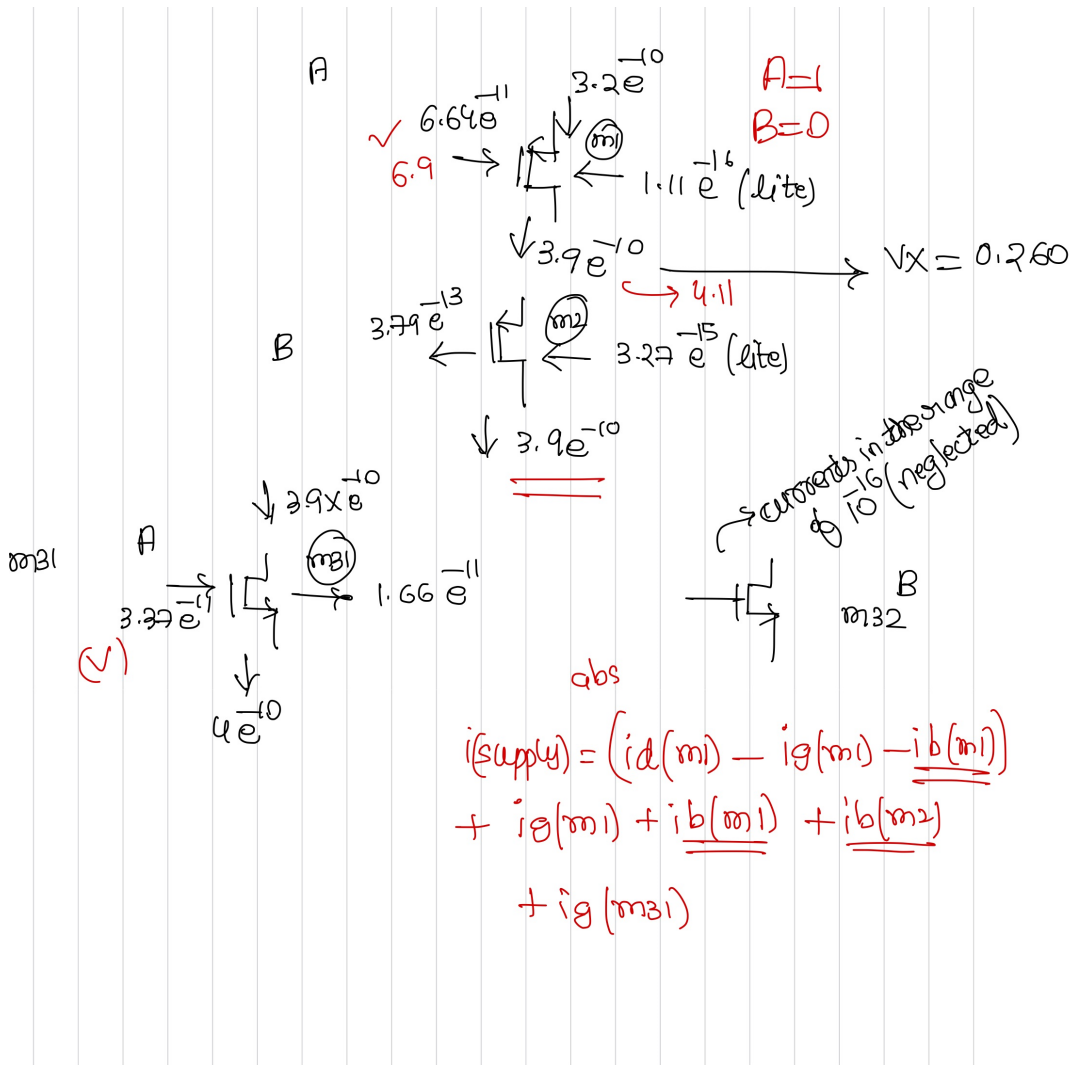 A
3.2e⁻¹⁰
A=1
6.64e⁻¹¹
B=0
m1
6.9
1.11 e⁻¹⁶ (lite)
3.9e⁻¹⁰
VX = 0.260
4.11
3.79e⁻¹³
m2
B
3.27 e⁻¹⁵ (lite)
3.9e⁻¹⁰
currents in the range
of 10⁻¹⁶ (neglected)
3.9xe⁻¹⁰
A
m31
m31
1.66 e⁻¹¹
B
m32
(V)
abs
4e⁻¹⁰
i(supply) = (id(m1) − ig(m1) − ib(m1))
+ ig(m1) + ib(m1) + ib(m2)
+ ig(m31)